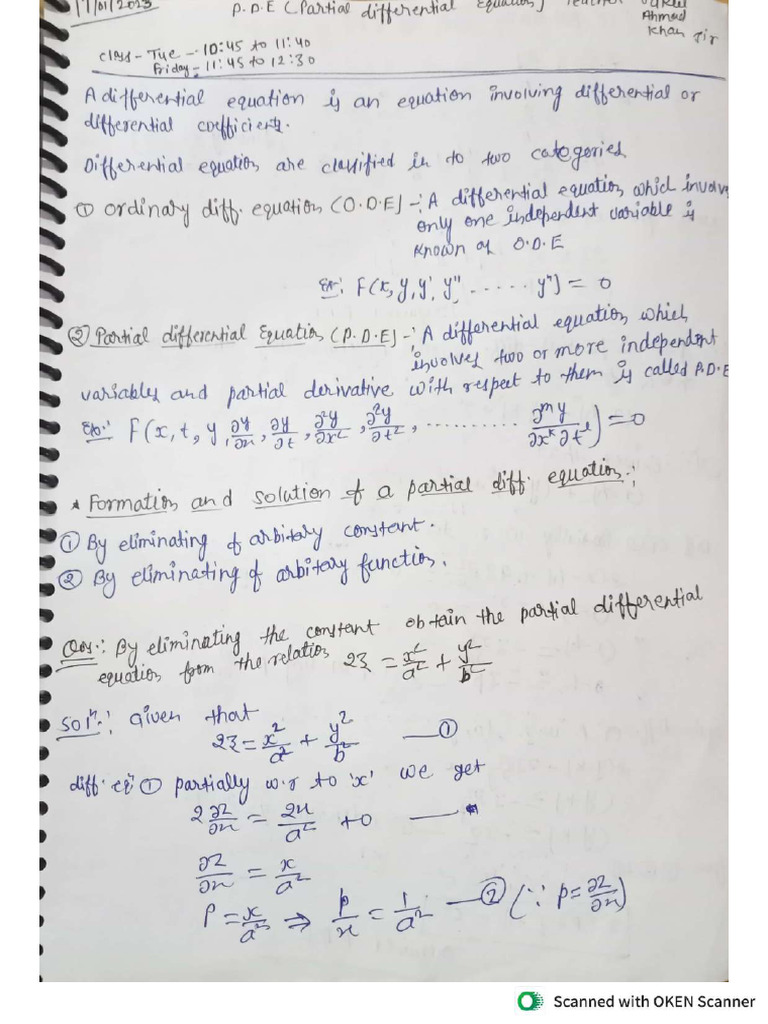 17/01/2023 P.D.E (Partial differential Equation) Teacher
Ahmad
Khan Sir
Class - Tue - 10:45 to 11:40
Friday - 11:45 to 12:30
A differential equation is an equation involving differential or
differential coefficients.
Differential equation are classified in to two categories
① Ordinary diff. equation (O.D.E) -: A differential equation which involve
only one independent variable is
known as O.D.E
Ex: F(x, y, y', y'' ...... yⁿ) = 0
② Partial differential Equation (P.D.E) -: A differential equation which
involves two or more independent
variables and partial derivative with respect to them is called P.D.E
Ex: F(x, t, y, ∂y/∂x, ∂y/∂t, ∂²y/∂x², ∂²y/∂t², .......... ∂ⁿy/∂xᵏ∂tˡ) = 0
* Formation and solution of a partial diff equation :
① By eliminating of arbitary constant.
② By eliminating of arbitary function.
Qus: By eliminating the constant obtain the partial differential
equation from the relation 2z = x²/a² + y²/b²
Solⁿ: Given that
2z = x²/a² + y²/b² — ①
diff. eqⁿ ① partially w.r to 'x' we get
2 ∂z/∂x = 2x/a² + 0 —
∂z/∂x = x/a²
P = x/a² ⇒ p/x = 1/a² — ② (∵ p = ∂z/∂x)
Scanned with OKEN Scanner